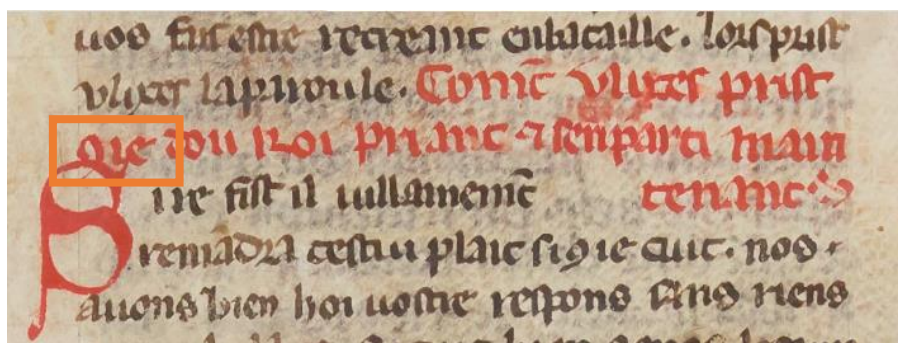 uos estre recreant enbataille. lors prist
vlixes la paroule. Comēt vlixes prist
gie dou Roi priant ⁊ senparti main
S ne fist il nullamēt tenant
remādra cestui plait si ꝯ ie cuit. nos
auons bien hoi uostre respons sans riens